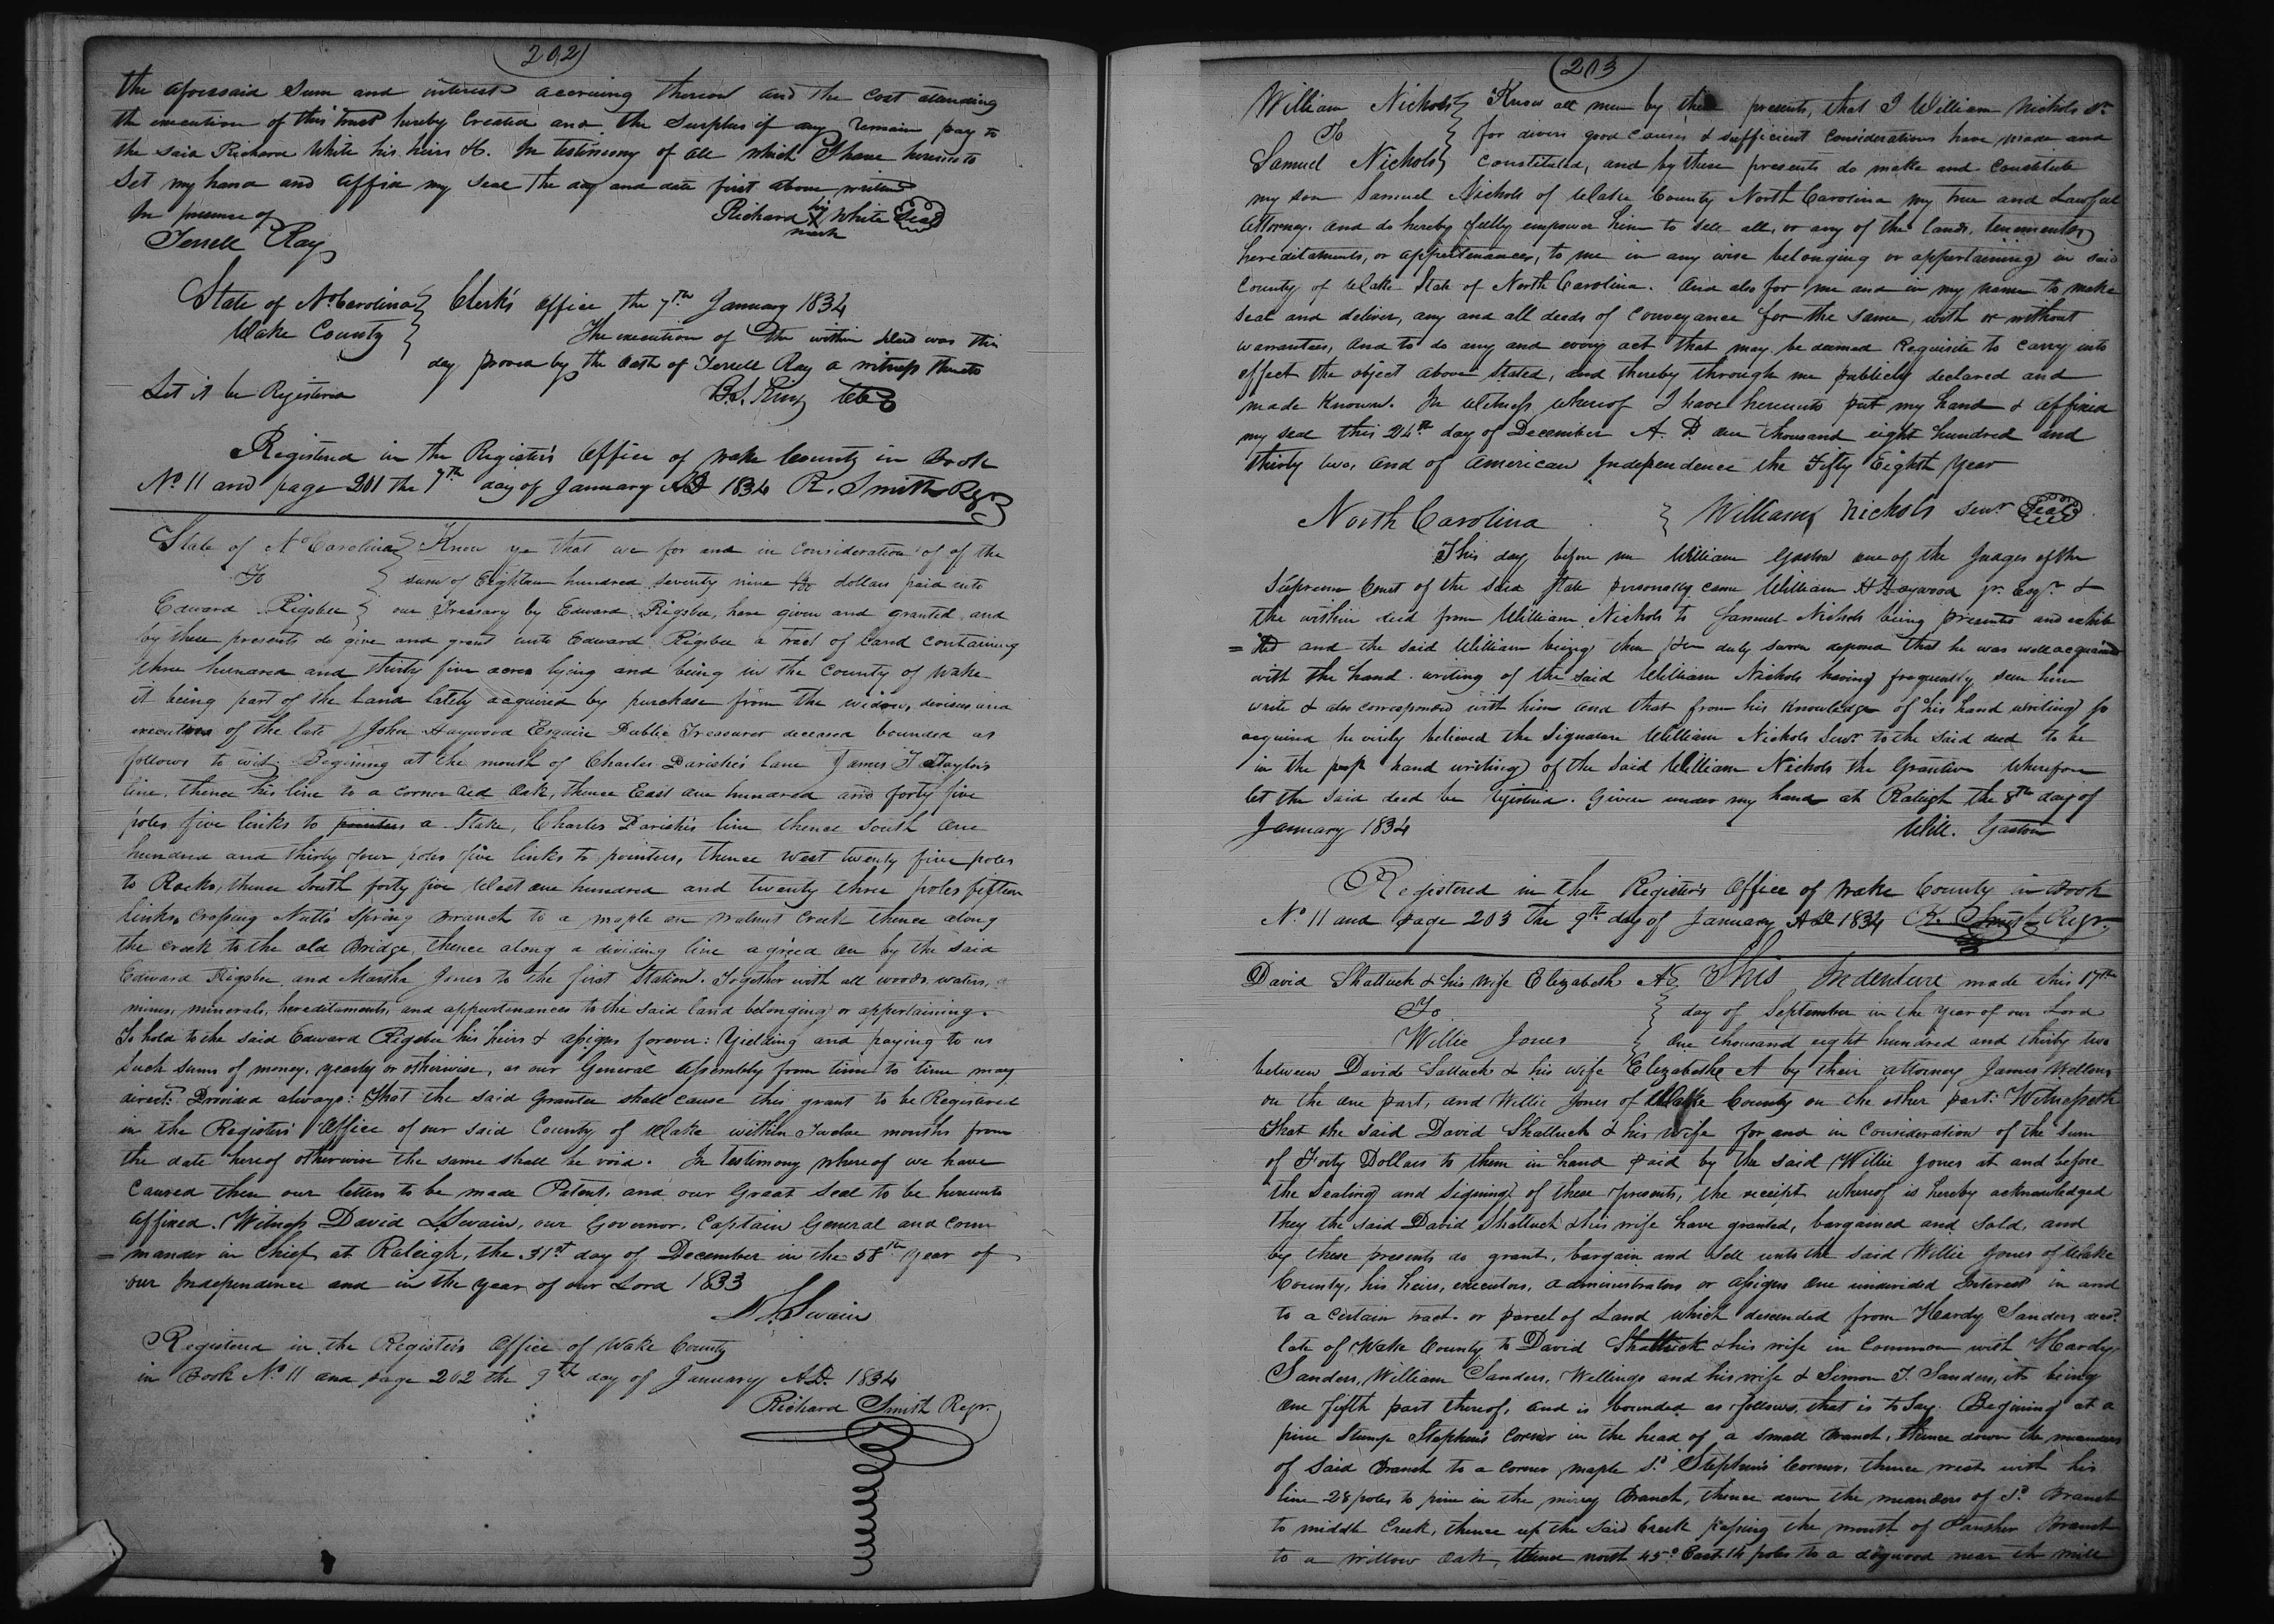 202
the aforesaid Sum and interest accruing thereon and the Cost attending
the execution of this trust hereby Created and the Surplus if any remain pay to
the said Richard White his heirs &c. In testimony of all which I have hereunto
Set my hand and affix my seal the day and date first above written
In presence of Richard his X mark White Seal
Terrell Ray
State of No Carolina } Clerk's office the 7th January 1834
Wake County } The execution of the within deed was this
day proven by the oath of Terrell Ray a witness thereto
Let it be Registered B.S. King Clk
Registered in the Register's office of Wake County in Book
No 11 and page 201 the 7th day of January AD 1834 R. Smith Rg
State of No Carolina } Know ye that we for and in consideration of of the
To } sum of Eighteen hundred seventy nine dollars paid into
Edward Rigsbee } our Treasury by Edward Rigsbee, have given and granted and
by these presents do give and grant unto Edward Rigsbee a tract of land containing
three hundred and thirty five acres lying and being in the County of Wake
it being part of the Land lately acquired by purchase from the widow, devisees and
executors of the late John Haywood Esquire Public Treasurer deceased bounded as
follows to wit: Begining at the mouth of Charles Parishe's lane James F Taylors
line, thence his line to a corner red Oak, thence East one hundred and forty five
poles five links to pointers a Stake, Charles Parish's line thence South one
hundred and thirty four poles five links to pointers, thence West twenty five poles
to Rocks, thence South forty five West one hundred and twenty three poles fifteen
links, crossing Nutt's Spring Branch to a maple on Walnut Creek thence along
the creek to the old Bridge, thence along a dividing line agreed on by the said
Edward Rigsbee and Martha Jones to the first Station. Together with all woods, waters,
mines, minerals, hereditaments, and appurtenances to the said land belonging or appertaining.
To hold to the said Edward Rigsbee his heirs & assigns forever: Yielding and paying to us
such sums of money, yearly or otherwise, as our General Assembly from time to time may
direct: Provided always: That the said Grantee shall cause this grant to be Registered
in the Register's Office of our said County of Wake within Twelve months from
the date hereof otherwise the same shall be void. In testimony whereof we have
Caused these our letters to be made Patent, and our Great Seal to be hereunto
affixed. Witness David L. Swain, our Governor, Captain General and Com
= mander in Chief at Raleigh, the 31st day of December in the 58th year of
our Independence and in the year of our Lord 1833
D L Swain
Registered in the Register's Office of Wake County
in Book No 11 and page 202 the 9th day of January A.D. 1834
Richard Smith Regr.
203
William Nichols } Know all men by these presents, that I William Nichols Sr
To } for divers good causes & sufficient considerations have made and
Samuel Nichols } constituted, and by these presents do make and constitute
my son Samuel Nichols of Wake County North Carolina my true and Lawful
Attorney. and do hereby fully empower him to sell all, or any of the lands, tenements,
hereditaments, or appurtenances, to me in any wise belonging or appertaining in said
County of Wake State of North Carolina. And also for me and in my name to make
seal and deliver, any and all deeds of conveyance for the same, with or without
warrantees, and to do any and every act that may be deemed Requisite to carry into
effect the object above stated, and thereby through me publicly declared and
made known. In Witness whereof I have hereunto put my hand & affixed
my seal this 24th day of December A.D. one thousand eight hundred and
thirty two, and of American Independence the Fifty Eighth year
North Carolina } William Nichols senr Seal
This day before me William Gaston one of the Judges of the
Supreme Court of the said State personally came William H Haywood jr. Esqr. &
the within deed from William Nichols to Samuel Nichols being presented and exhibi
= ted and the said William being then duly sworn deposed that he was well acquainted
with the hand writing of the said William Nichols having frequently seen him
write & also corresponded with him and that from his knowledge of his hand writing so
acquired he verily believed the Signature William Nichols Senr. to the said deed to be
in the prop hand writing of the said William Nichols the Grantor Wherefore
let the said deed be registered. Given under my hand at Raleigh the 8th day of
January 1834 Will. Gaston
Registered in the Register's Office of Wake County in Book
No 11 and page 203 the 9th day of January AD 1834 R. Smith Regr.
David Shattuck & his wife Elizabeth A } This Indenture made this 17th
To } day of September in the year of our Lord
Willie Jones } one thousand eight hundred and thirty two
between David Sattuck & his wife Elizabeth A by their attorney James
on the one part, and Willie Jones of Wake County on the other part: Witnesseth
That the said David Shattuck & his wife for and in consideration of the sum
of Forty Dollars to them in hand paid by the said Willie Jones at and before
the sealing and signing of these presents, the receipt whereof is hereby acknowledged
they the said David Shattuck & his wife have granted, bargained and sold, and
by these presents do grant, bargain and sell unto the said Willie Jones of Wake
County, his heirs, executors, administrators or assigns one undivided Interest in and
to a certain tract or parcel of Land which descended from Hardy Sanders decd.
late of Wake County to David Shattuck & his wife in Common with Hardy
Sanders, William Sanders, Wellings and his wife & Simon T. Sanders, its being
one fifth part thereof, and is bounded as follows, that is to say: Begining at a
pine Stump Stephens Corner in the head of a small Branch, thence down the meanders
of said Branch to a corner maple sd. Stephens Corner, thence west with his
line 28 poles to pine in the mirey Branch, thence down the meanders of sd. Branch
to middle Creek, thence up the said Creek passing the mouth of Panther Branch
to a willow oak, thence north 45° East 14 poles to a dogwood near the mill